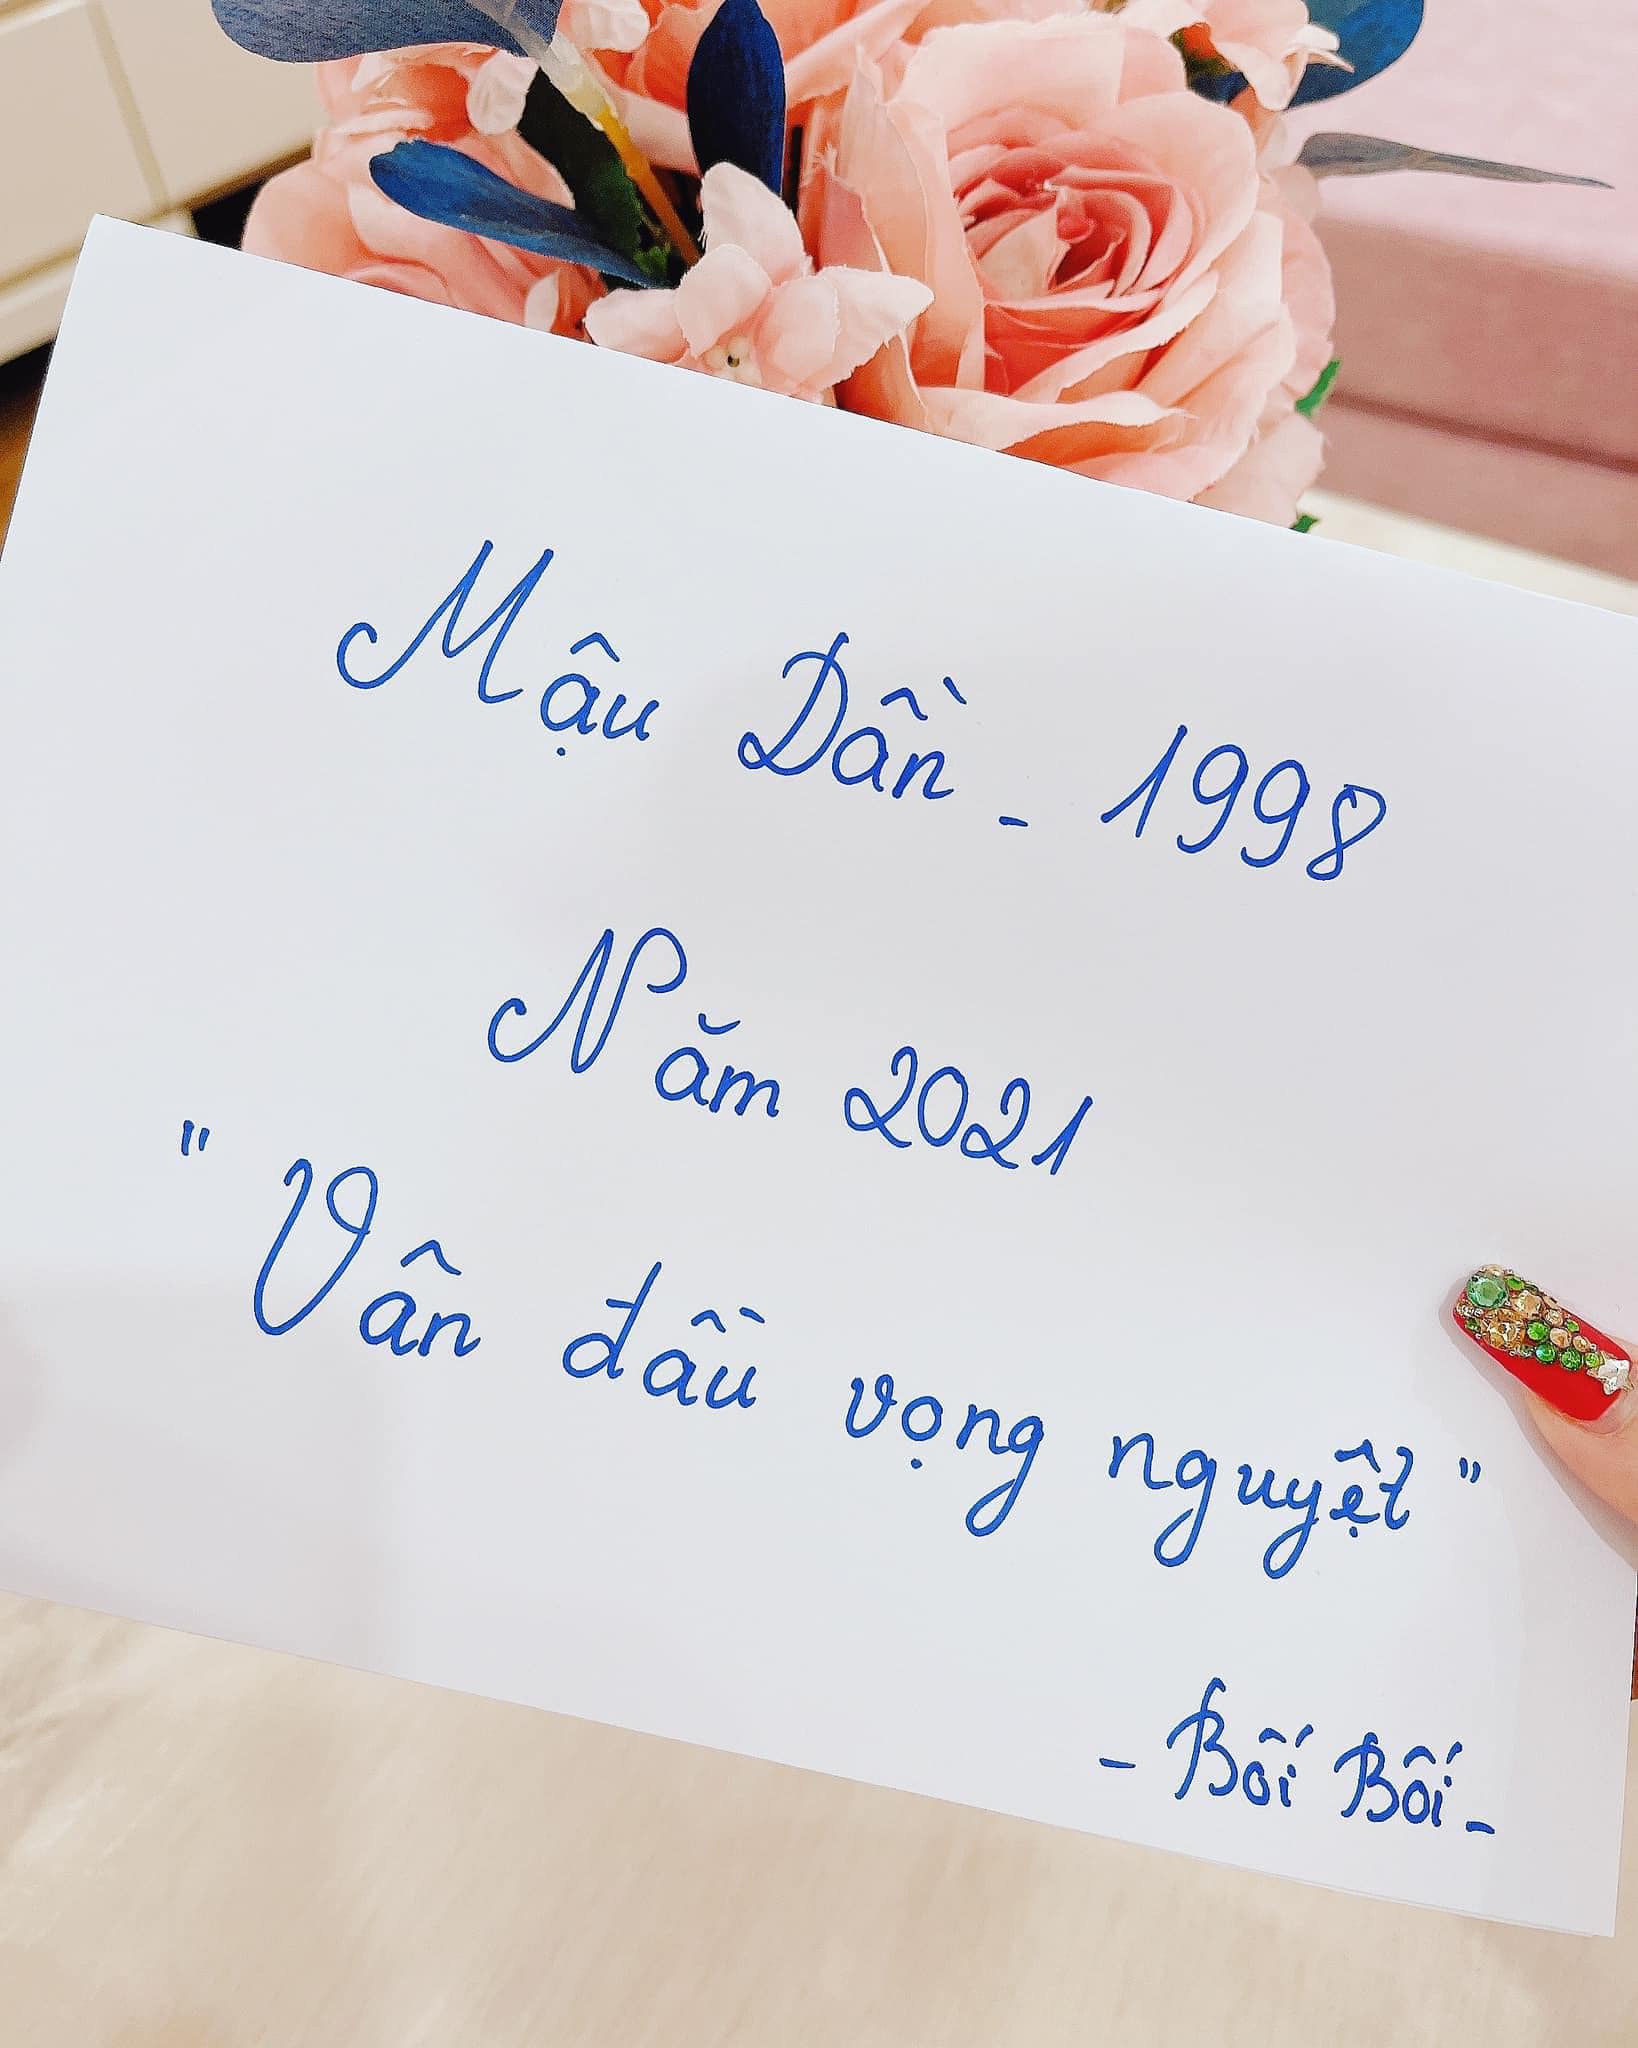 Mậu Dần - 1998
Năm 2021
" Vân đầu vọng nguyệt "
- Bối Bối -